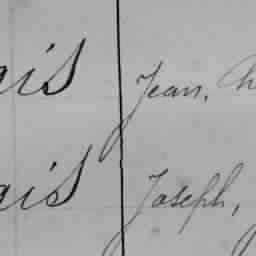 ais Jean,
ais Joseph,